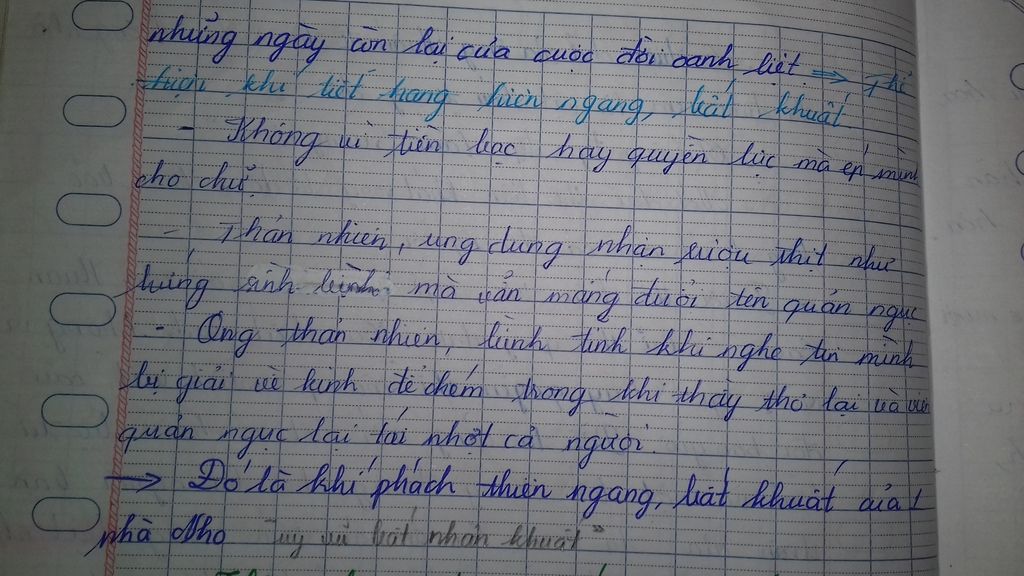 những ngày còn lại của cuộc đời oanh liệt => Thể
hiện khí tiết hang hiên ngang, bất khuất.
- Không vì tiền bạc hay quyền lực mà ép mình
cho chữ.
- Thản nhiên, ung dung nhận rượu thịt như
hứng sinh bình mà vẫn mắng đuổi tên quản ngục
- Ông thản nhiên, bình tĩnh khi nghe tin mình
bị giải về kinh để chém trong khi thầy thơ lại và viên
quản ngục lại tái nhợt cả người.
→ Đó là khí phách hiên ngang, bất khuất của 1
nhà Nho "uy vũ bất năng khuất"